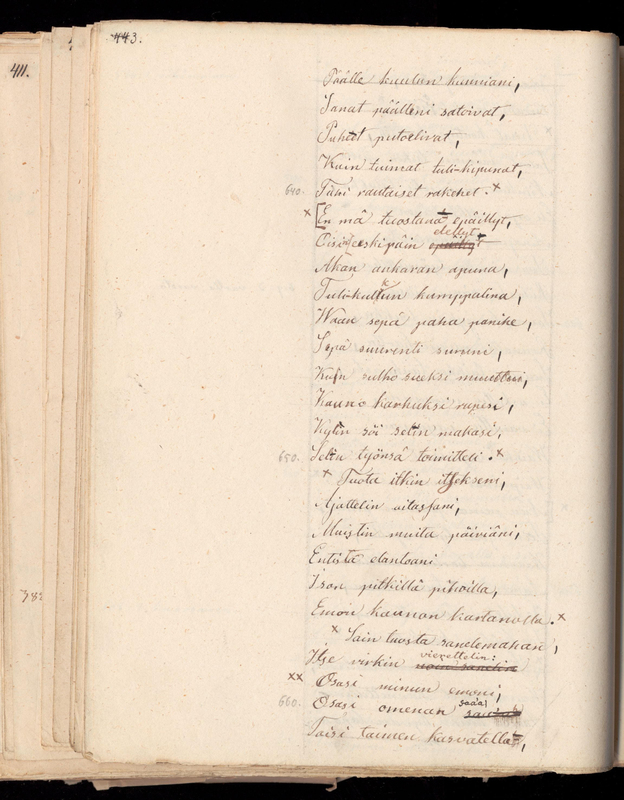 443.
411.
Päälle kuulun kunniani,
Sanat päälleni satoivat,
Puheet putoelivat,
Kuin tuimat tulikipunat,
640. Tahi rautaiset rakehet. x
x [En mä tuostana epäillyt,
dellyt
Oisi eeskipäin
Akan ankaran apuna,
Tulikulkun kumppalina,
Waan sepä paha panihe,
Sepä suurenti surmi,
Kuin sulho sueksi muuttui,
Kauno karhuksi rupesi,
Kylin söi selin makasi,
650. Selin työnsä toimitteli. x
x Tuota itkin itsekseni,
Ajattelin aitassani,
Muistin muita päiviäni,
Entistä elantoani
Ison pitkillä pihoilla,
Emon kaunon kartanolla. x
x Sain tuosta sanelemahan,
vierettelin:
Itse virkin
xx Osasi minun emoni,
saa'a
660. Osasi omenan
Taisi taimen kasvatella,
382